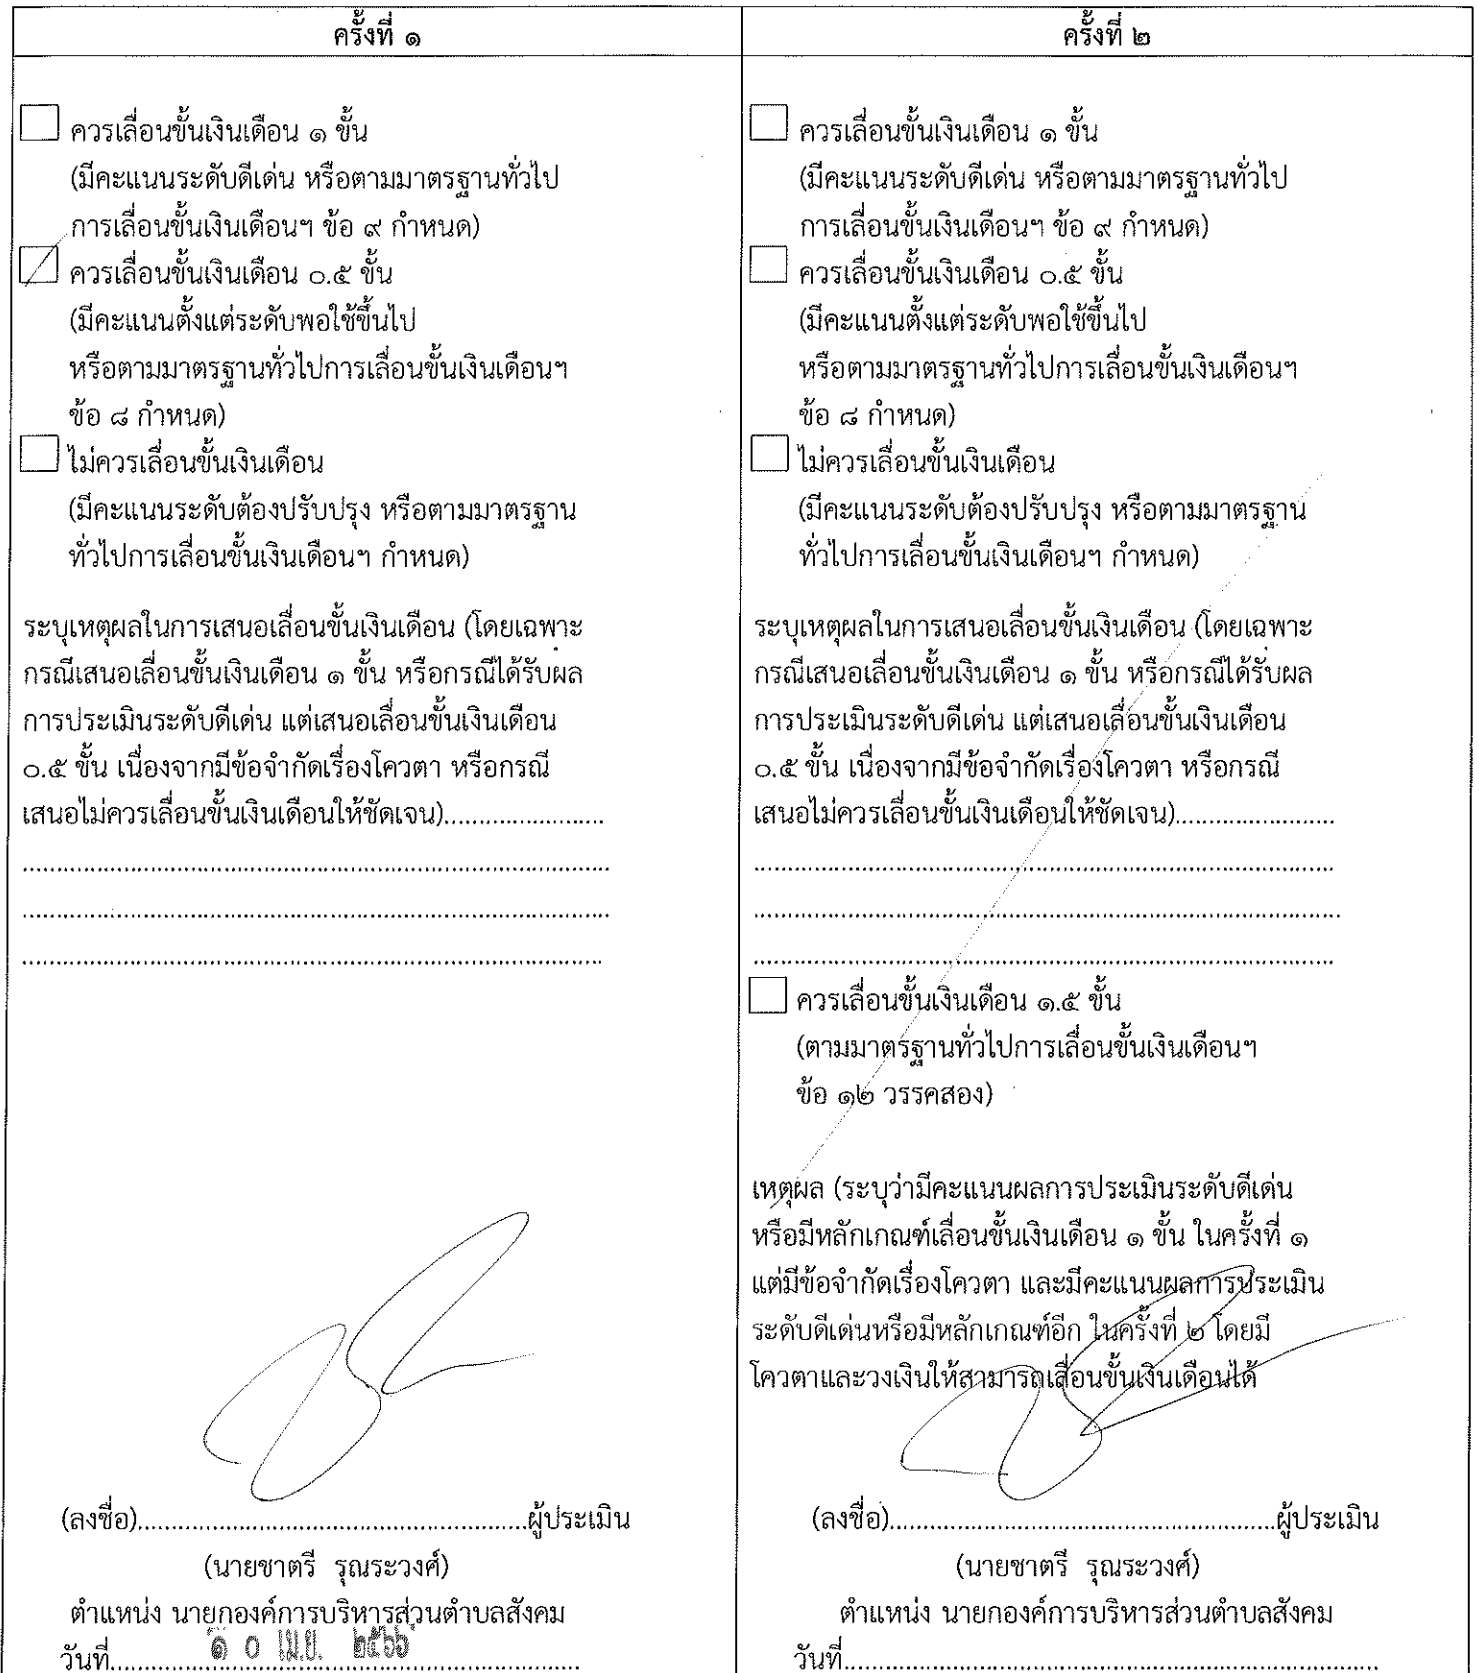 ครั้งที่ ๑
ควรเลื่อนขั้นเงินเดือน ๑ ขั้น
(มีคะแนนระดับดีเด่น หรือตามมาตรฐานทั่วไป
การเลื่อนขั้นเงินเดือนฯ ข้อ ๙ กำหนด)
ควรเลื่อนขั้นเงินเดือน ๐.๕ ขั้น
(มีคะแนนตั้งแต่ระดับพอใช้ขึ้นไป
หรือตามมาตรฐานทั่วไปการเลื่อนขั้นเงินเดือนฯ
ข้อ ๘ กำหนด)
ไม่ควรเลื่อนขั้นเงินเดือน
(มีคะแนนระดับต้องปรับปรุง หรือตามมาตรฐาน
ทั่วไปการเลื่อนขั้นเงินเดือนฯ กำหนด)
ระบุเหตุผลในการเสนอเลื่อนขั้นเงินเดือน (โดยเฉพาะ
กรณีเสนอเลื่อนขั้นเงินเดือน ๑ ขั้น หรือกรณีได้รับผล
การประเมินระดับดีเด่น แต่เสนอเลื่อนขั้นเงินเดือน
๐.๕ ขั้น เนื่องจากมีข้อจำกัดเรื่องโควตา หรือกรณี
เสนอไม่ควรเลื่อนขั้นเงินเดือนให้ชัดเจน)........................
(ลงชื่อ)..........................................................ผู้ประเมิน
(นายชาตรี รุณระวงศ์)
ตำแหน่ง นายกองค์การบริหารส่วนตำบลสังคม
วันที่ ๑ ๐ เม.ย. ๒๕๖๖
ครั้งที่ ๒
ควรเลื่อนขั้นเงินเดือน ๑ ขั้น
(มีคะแนนระดับดีเด่น หรือตามมาตรฐานทั่วไป
การเลื่อนขั้นเงินเดือนฯ ข้อ ๙ กำหนด)
ควรเลื่อนขั้นเงินเดือน ๐.๕ ขั้น
(มีคะแนนตั้งแต่ระดับพอใช้ขึ้นไป
หรือตามมาตรฐานทั่วไปการเลื่อนขั้นเงินเดือนฯ
ข้อ ๘ กำหนด)
ไม่ควรเลื่อนขั้นเงินเดือน
(มีคะแนนระดับต้องปรับปรุง หรือตามมาตรฐาน
ทั่วไปการเลื่อนขั้นเงินเดือนฯ กำหนด)
ระบุเหตุผลในการเสนอเลื่อนขั้นเงินเดือน (โดยเฉพาะ
กรณีเสนอเลื่อนขั้นเงินเดือน ๑ ขั้น หรือกรณีได้รับผล
การประเมินระดับดีเด่น แต่เสนอเลื่อนขั้นเงินเดือน
๐.๕ ขั้น เนื่องจากมีข้อจำกัดเรื่องโควตา หรือกรณี
เสนอไม่ควรเลื่อนขั้นเงินเดือนให้ชัดเจน)........................
ควรเลื่อนขั้นเงินเดือน ๑.๕ ขั้น
(ตามมาตรฐานทั่วไปการเลื่อนขั้นเงินเดือนฯ
ข้อ ๑๒ วรรคสอง)
เหตุผล (ระบุว่ามีคะแนนผลการประเมินระดับดีเด่น
หรือมีหลักเกณฑ์เลื่อนขั้นเงินเดือน ๑ ขั้น ในครั้งที่ ๑
แต่มีข้อจำกัดเรื่องโควตา และมีคะแนนผลการประเมิน
ระดับดีเด่นหรือมีหลักเกณฑ์อีก ในครั้งที่ ๒ โดยมี
โควตาและวงเงินให้สามารถเลื่อนขั้นเงินเดือนได้
(ลงชื่อ)..........................................................ผู้ประเมิน
(นายชาตรี รุณระวงศ์)
ตำแหน่ง นายกองค์การบริหารส่วนตำบลสังคม
วันที่................................................................................